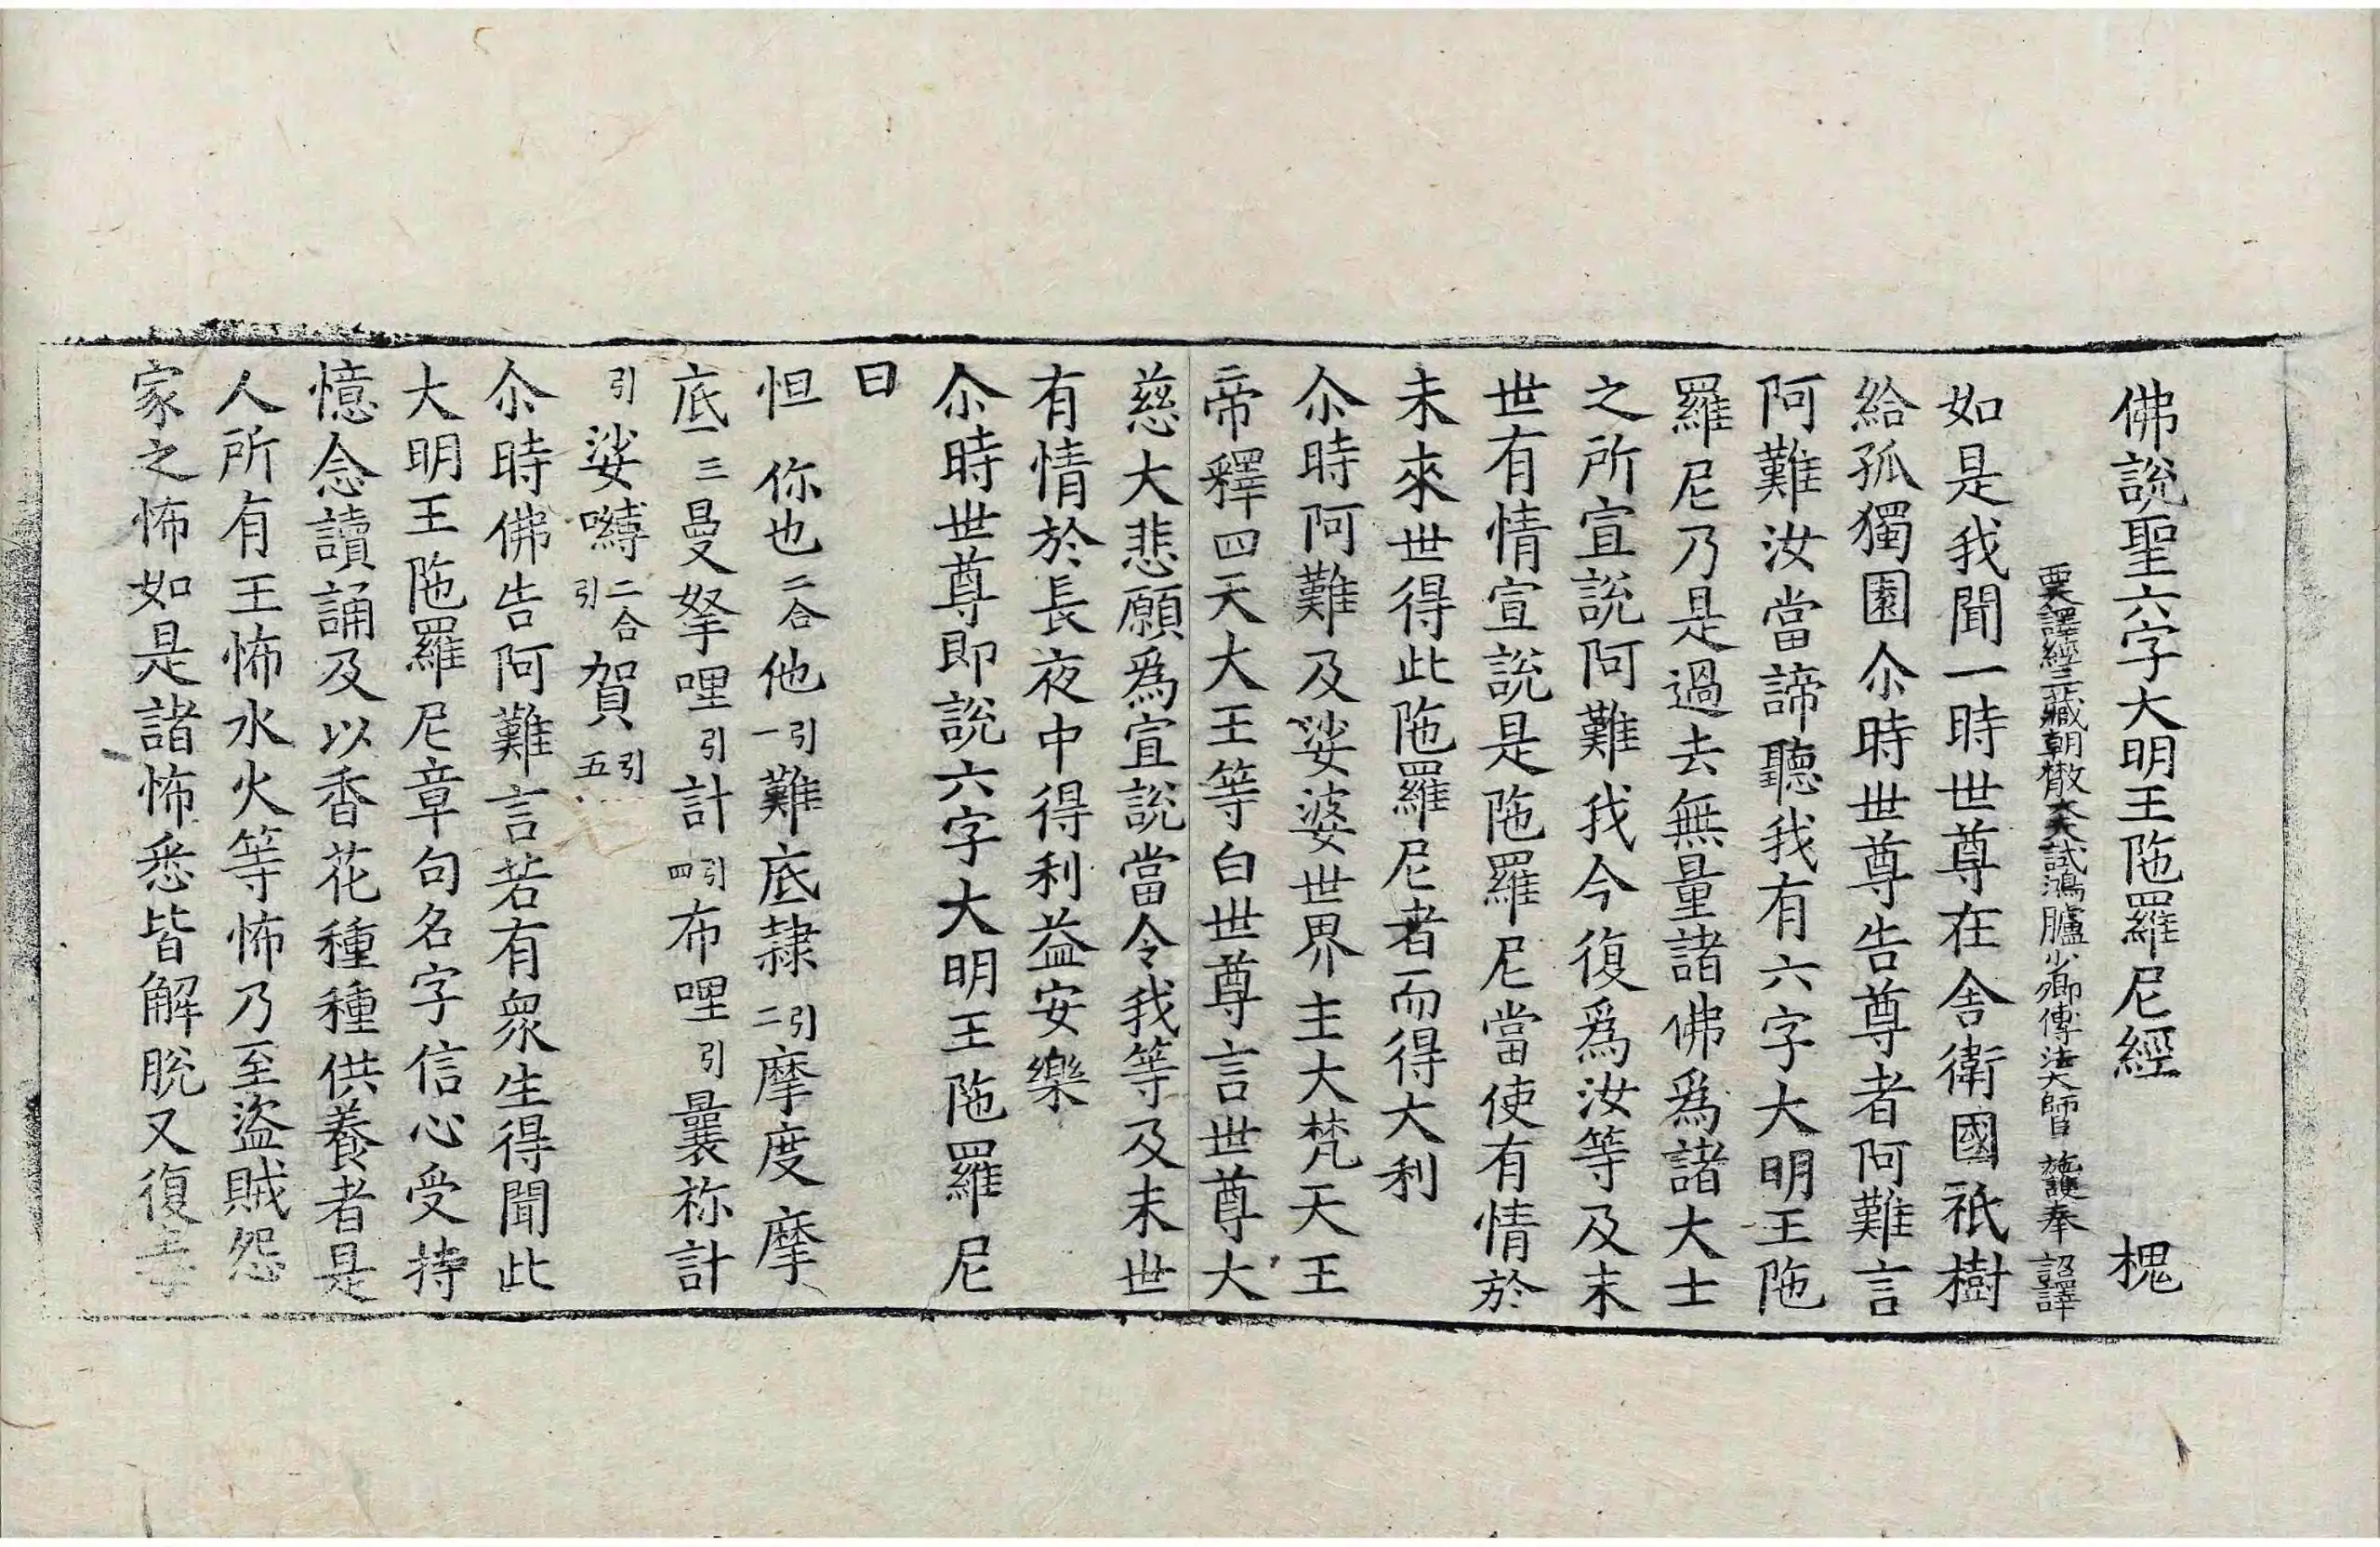 佛說聖六字大明王陁羅尼經 槐
西天譯經三藏朝散大夫試鴻臚少卿傳法大師臣施護奉 詔譯
如是我聞一時世尊在舍衛國祇樹
給孤獨園尒時世尊告尊者阿難言
阿難汝當諦聽我有六字大明王陁
羅尼乃是過去無量諸佛爲諸大士
之所宣說阿難我今復爲汝等及末
世有情宣說是陁羅尼當使有情於
未來世得此陁羅尼者而得大利
尒時阿難及娑婆世界主大梵天王
帝釋四天大王等白世尊言世尊大
慈大悲願爲宣說當令我等及末世
有情於長夜中得利益安樂
尒時世尊即說六字大明王陁羅尼
曰
怛你也二合他引一難底隷引二摩度摩
底三曼拏哩引計引四布哩引曩祢計
引娑嚩二合引賀引五
尒時佛告阿難言若有衆生得聞此
大明王陁羅尼章句名字信心受持
憶念讀誦及以香花種種供養者是
人所有王怖水火等怖乃至盜賊怨
家之怖如是諸怖悉皆解脫又復